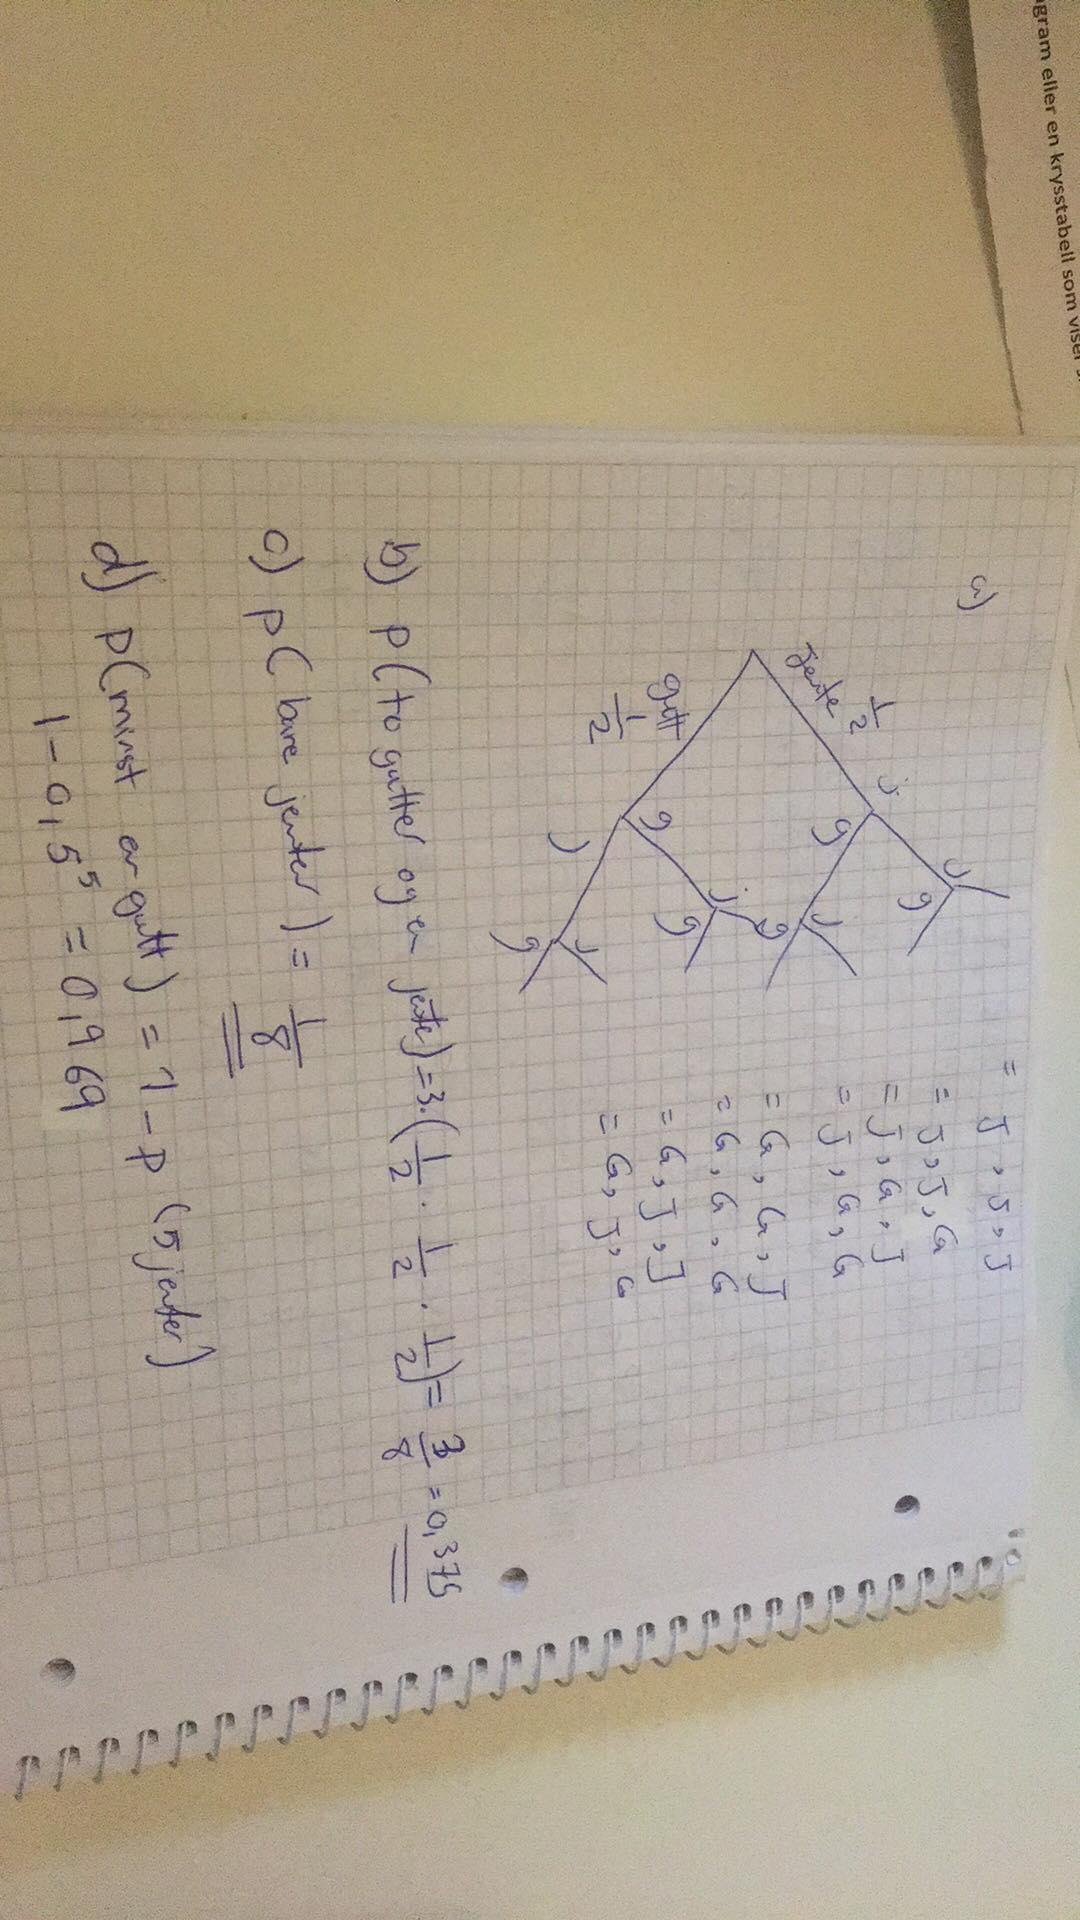 agram eller en krysstabell som viser
a)
jente 1/2
gutt 1/2
j
g
g
j
j
g
j
g
j
g
j
g
= J, J, J
= J, J, G
= J, G, J
= J, G, G
= G, G, J
= G, G, G
= G, J, J
= G, J, G
b) P(to gutter og en jente) = 3·(1/2 · 1/2 · 1/2) = 3/8 = 0,375
c) P(bare jenter) = 1/8
d) P(minst en gutt) = 1 - P (5 jenter)
1 - 0,5⁵ = 0,969